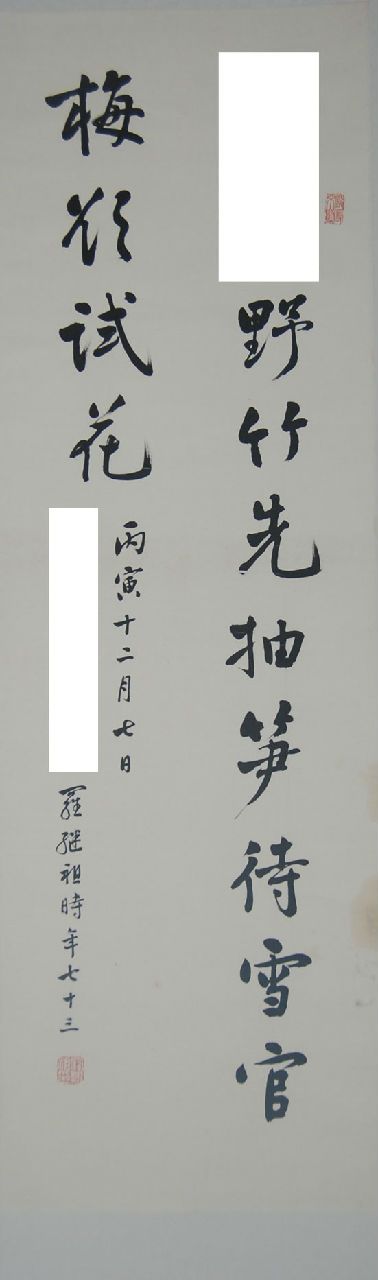 野竹先抽笋待雪官
梅欲试花
丙寅十二月七日
羅继祖時年七十三